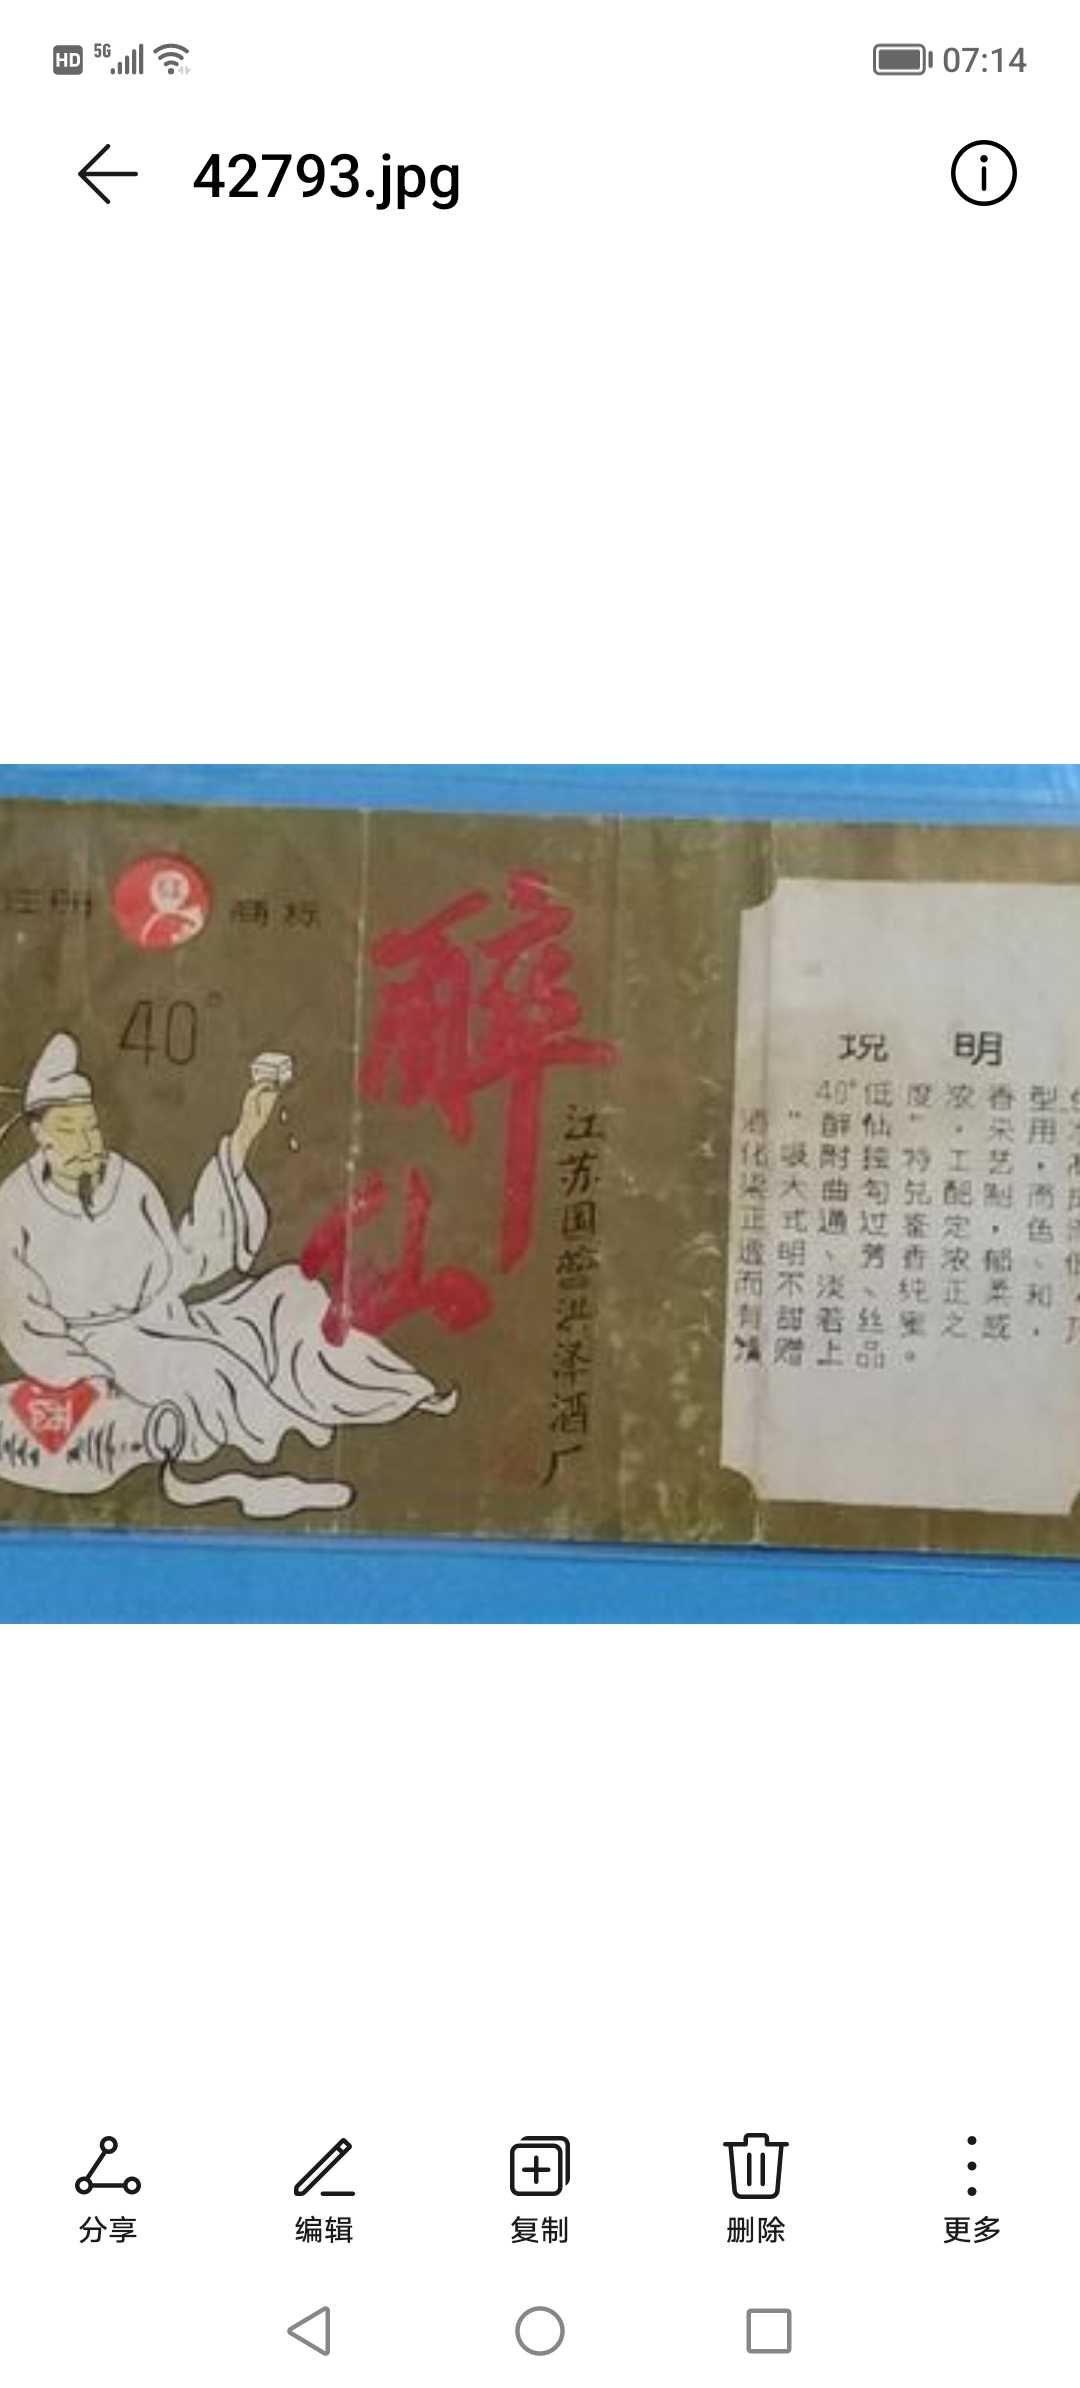 HD 5G 07:14
42793.jpg
注册 商标
40°
醉仙
江苏国营洪泽酒厂
说 明
40°低度浓香型
酒“醉仙”，采用
大曲勾兑配制，而
正式通过鉴定，色
透明、芳香浓郁、
而不淡、香纯正柔和，
有甜若丝蜜之感，
馈赠上品。
分享 编辑 复制 删除 更多